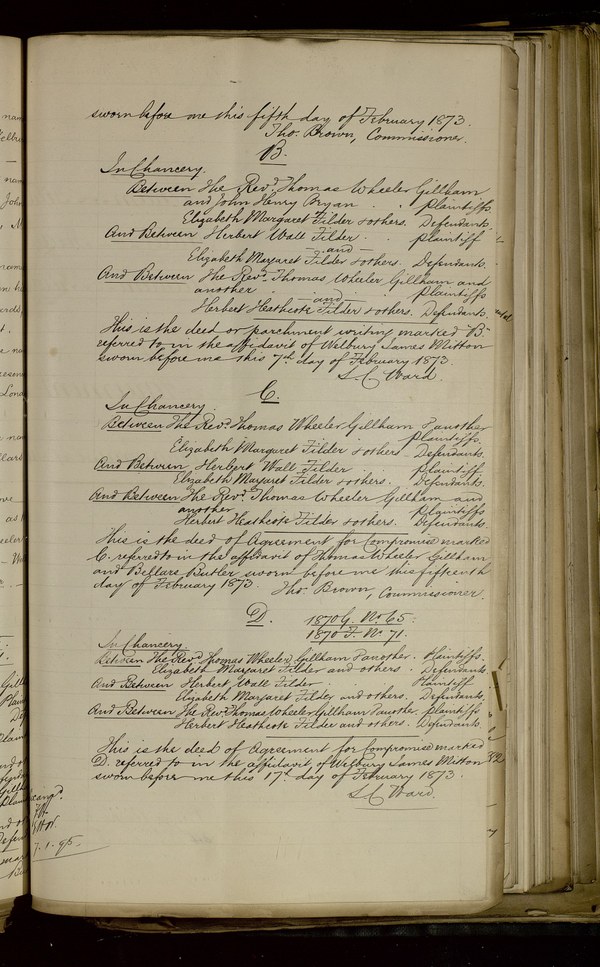 sworn before me this fifth day of February 1873.
Tho. Brown, Commissioner.
B.
In Chancery.
Between The Revd. Thomas Wheeler Gillham
and John Henry Bryan . . Plaintiffs
Elizabeth Margaret Filder & others. Defendants.
And Between Herbert Wall Filder . . Plaintiff
—and—
Elizabeth Margaret Filder & others. Defendants.
And Between The Revd. Thomas Wheeler Gillham and
another . —and— . Plaintiffs
Herbert Heathcote Filder & others. Defendants.
This is the deed or parchment writing marked B.
referred to in the affidavit of Welbury James Mitton
sworn before me this 7th day of February 1873.
S. C. Ward.
C.
In Chancery.
Between The Revd. Thomas Wheeler Gillham & another
Plaintiffs.
Elizabeth Margaret Filder & others. Defendants.
And Between Herbert Wall Filder . Plaintiff
Elizabeth Margaret Filder & others. Defendants.
And Between The Revd. Thomas Wheeler Gillham and
another . Plaintiffs
Herbert Heathcote Filder & others. Defendants.
This is the deed of Agreement for Compromise marked
C. referred to in the affidavit of Thomas Wheeler Gillham
and Butler sworn before me this fifteenth
day of February 1873. Tho. Brown, Commissioner.
D. 1870 G. No. 65.
1870 F. No. 71.
In Chancery
Between The Revd. Thomas Wheeler Gillham & another. Plaintiffs.
Elizabeth Margaret Filder and others . Defendants
And Between Herbert Wall Filder . Plaintiff
Elizabeth Margaret Filder and others. Defendants.
And Between The Revd. Thomas Wheeler Gillham & another. Plaintiffs
Herbert Heathcote Filder and others. Defendants.
This is the deed of Agreement for Compromise marked
D. referred to in the affidavit of Welbury James Mitton
sworn before me this 17th day of February 1873.
S. C. Ward.
7.1.95.